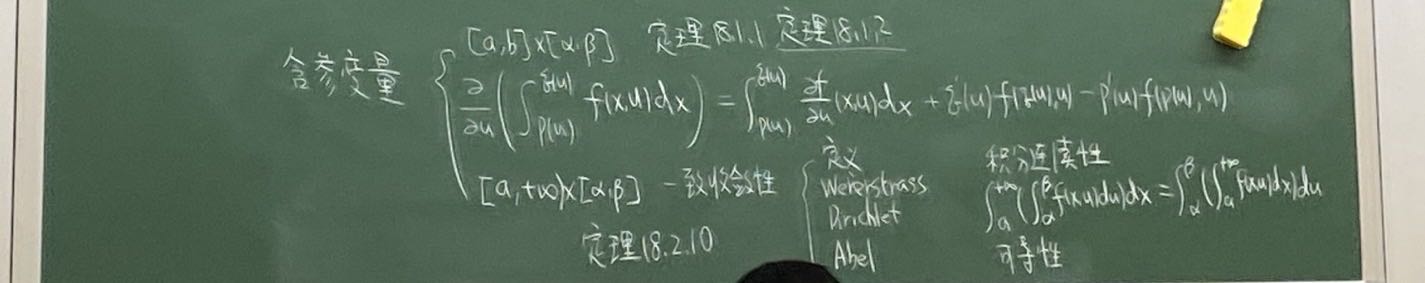 含参变量
[a,b]×[α,β] 定理18.1.1 定理18.1.2
∂/∂u (∫_{p(u)}^{q(u)} f(x,u)dx) = ∫_{p(u)}^{q(u)} ∂f/∂u (x,u)dx + q'(u) f(q(u),u) - p'(u) f(p(u),u)
[a,+∞)×[α,β] 一致收敛性
定理18.2.10
定义
Weierstrass
Dirichlet
Abel
积分连续性
∫_a^{+∞} (∫_α^β f(x,u)du)dx = ∫_α^β (∫_a^{+∞} f(x,u)dx)du
可导性